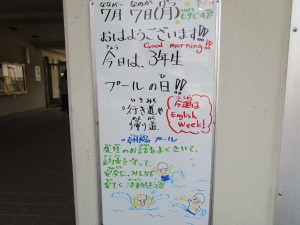 7月7日(月)
おはようございます!!
Good morning!!
今日は、3年生
プールの日!!
行き道や
帰り道
今週は
English
Week!
プール
先生のお話をよくきいて、
約束を守って、
安全に、みんなで
楽しく活動しよう